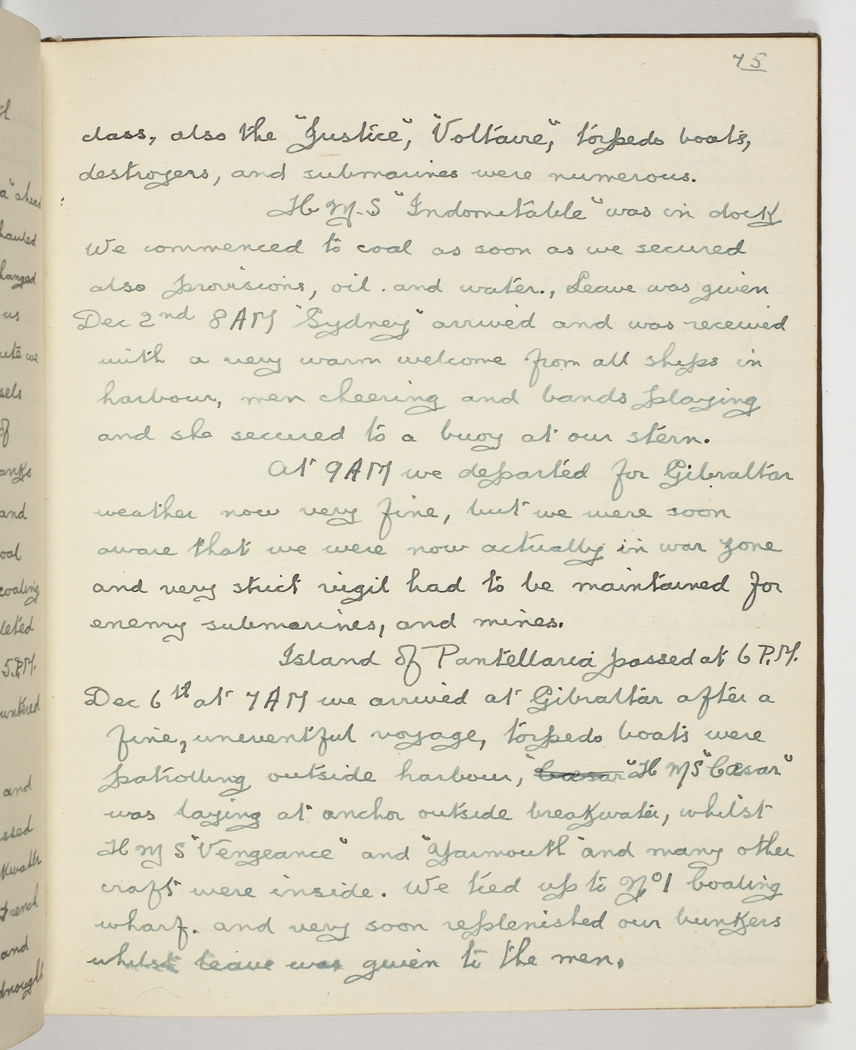 75
class, also the "Justice", "Voltaire", torpedo boats,
destroyers, and submarines were numerous.
H.M.S "Indomitable" was in dock
We commenced to coal as soon as we secured
also provisions, oil. and water., Leave was given
Dec 2nd 8AM "Sydney" arrived and was received
with a very warm welcome from all ships in
harbour, men cheering and bands playing
and she secured to a buoy at our stern.
At 9AM we departed for Gibraltar
weather now very fine, but we were soon
aware that we were now actually in war zone
and very strict vigil had to be maintained for
enemy submarines, and mines.
Island of Pantellaria passed at 6 P.M.
Dec 6th at 7AM we arrived at Gibraltar after a
fine, uneventful voyage, torpedo boats were
patrolling outside harbour, "Caesar" H MS "Cæsar"
was laying at anchor outside breakwater, whilst
H M S "Vengeance" and "Yarmouth" and many other
craft were inside. We tied up to No 1 boating
wharf. and very soon replenished our bunkers
whilst leave was given to the men.